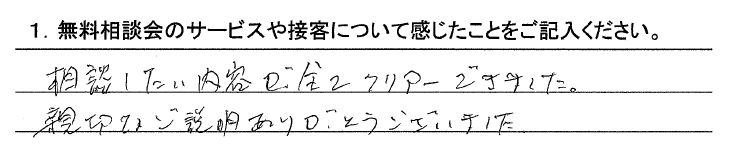 1. 無料相談会のサービスや接客について感じたことをご記入ください。
相談したい内容が全てクリアーできました。
親切なご説明ありがとうございました